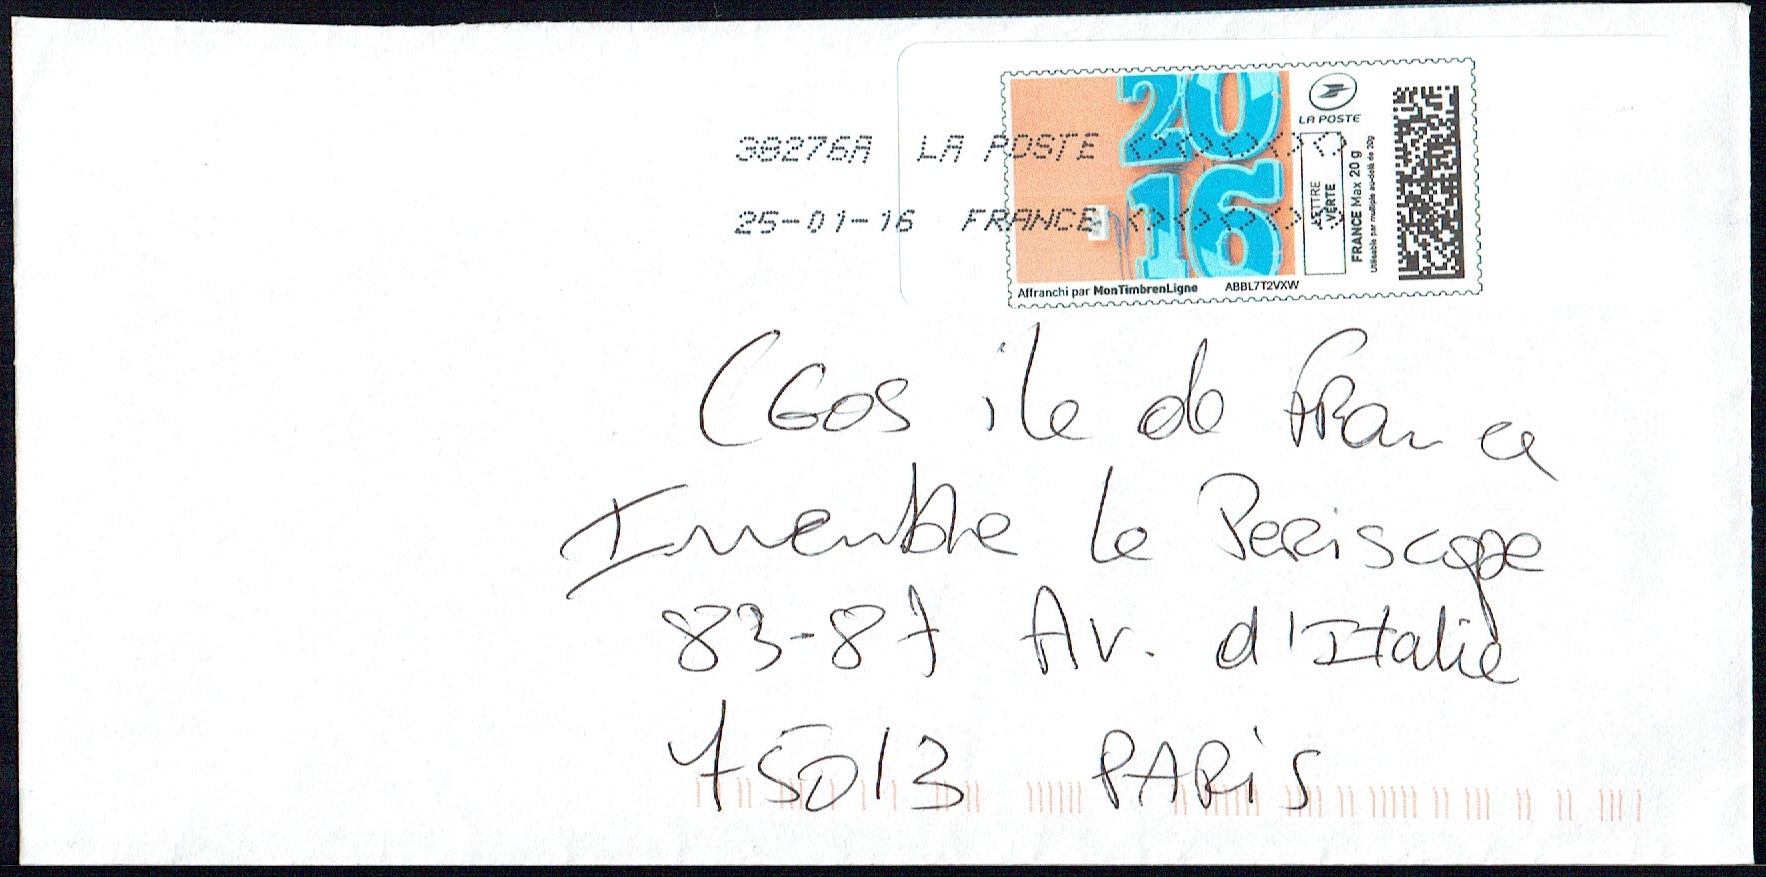 38276A LA POSTE
25-01-16 FRANCE
20
16
LA POSTE
LETTRE
VERTE
FRANCE Max 20 g
Utilisable par multiple au-delà de 20g
Affranchi par MonTimbrenLigne ABBL7T2VXW
CGOS ile de France
Immeuble le Periscope
83-87 Av. d'Italie
75013 PARIS